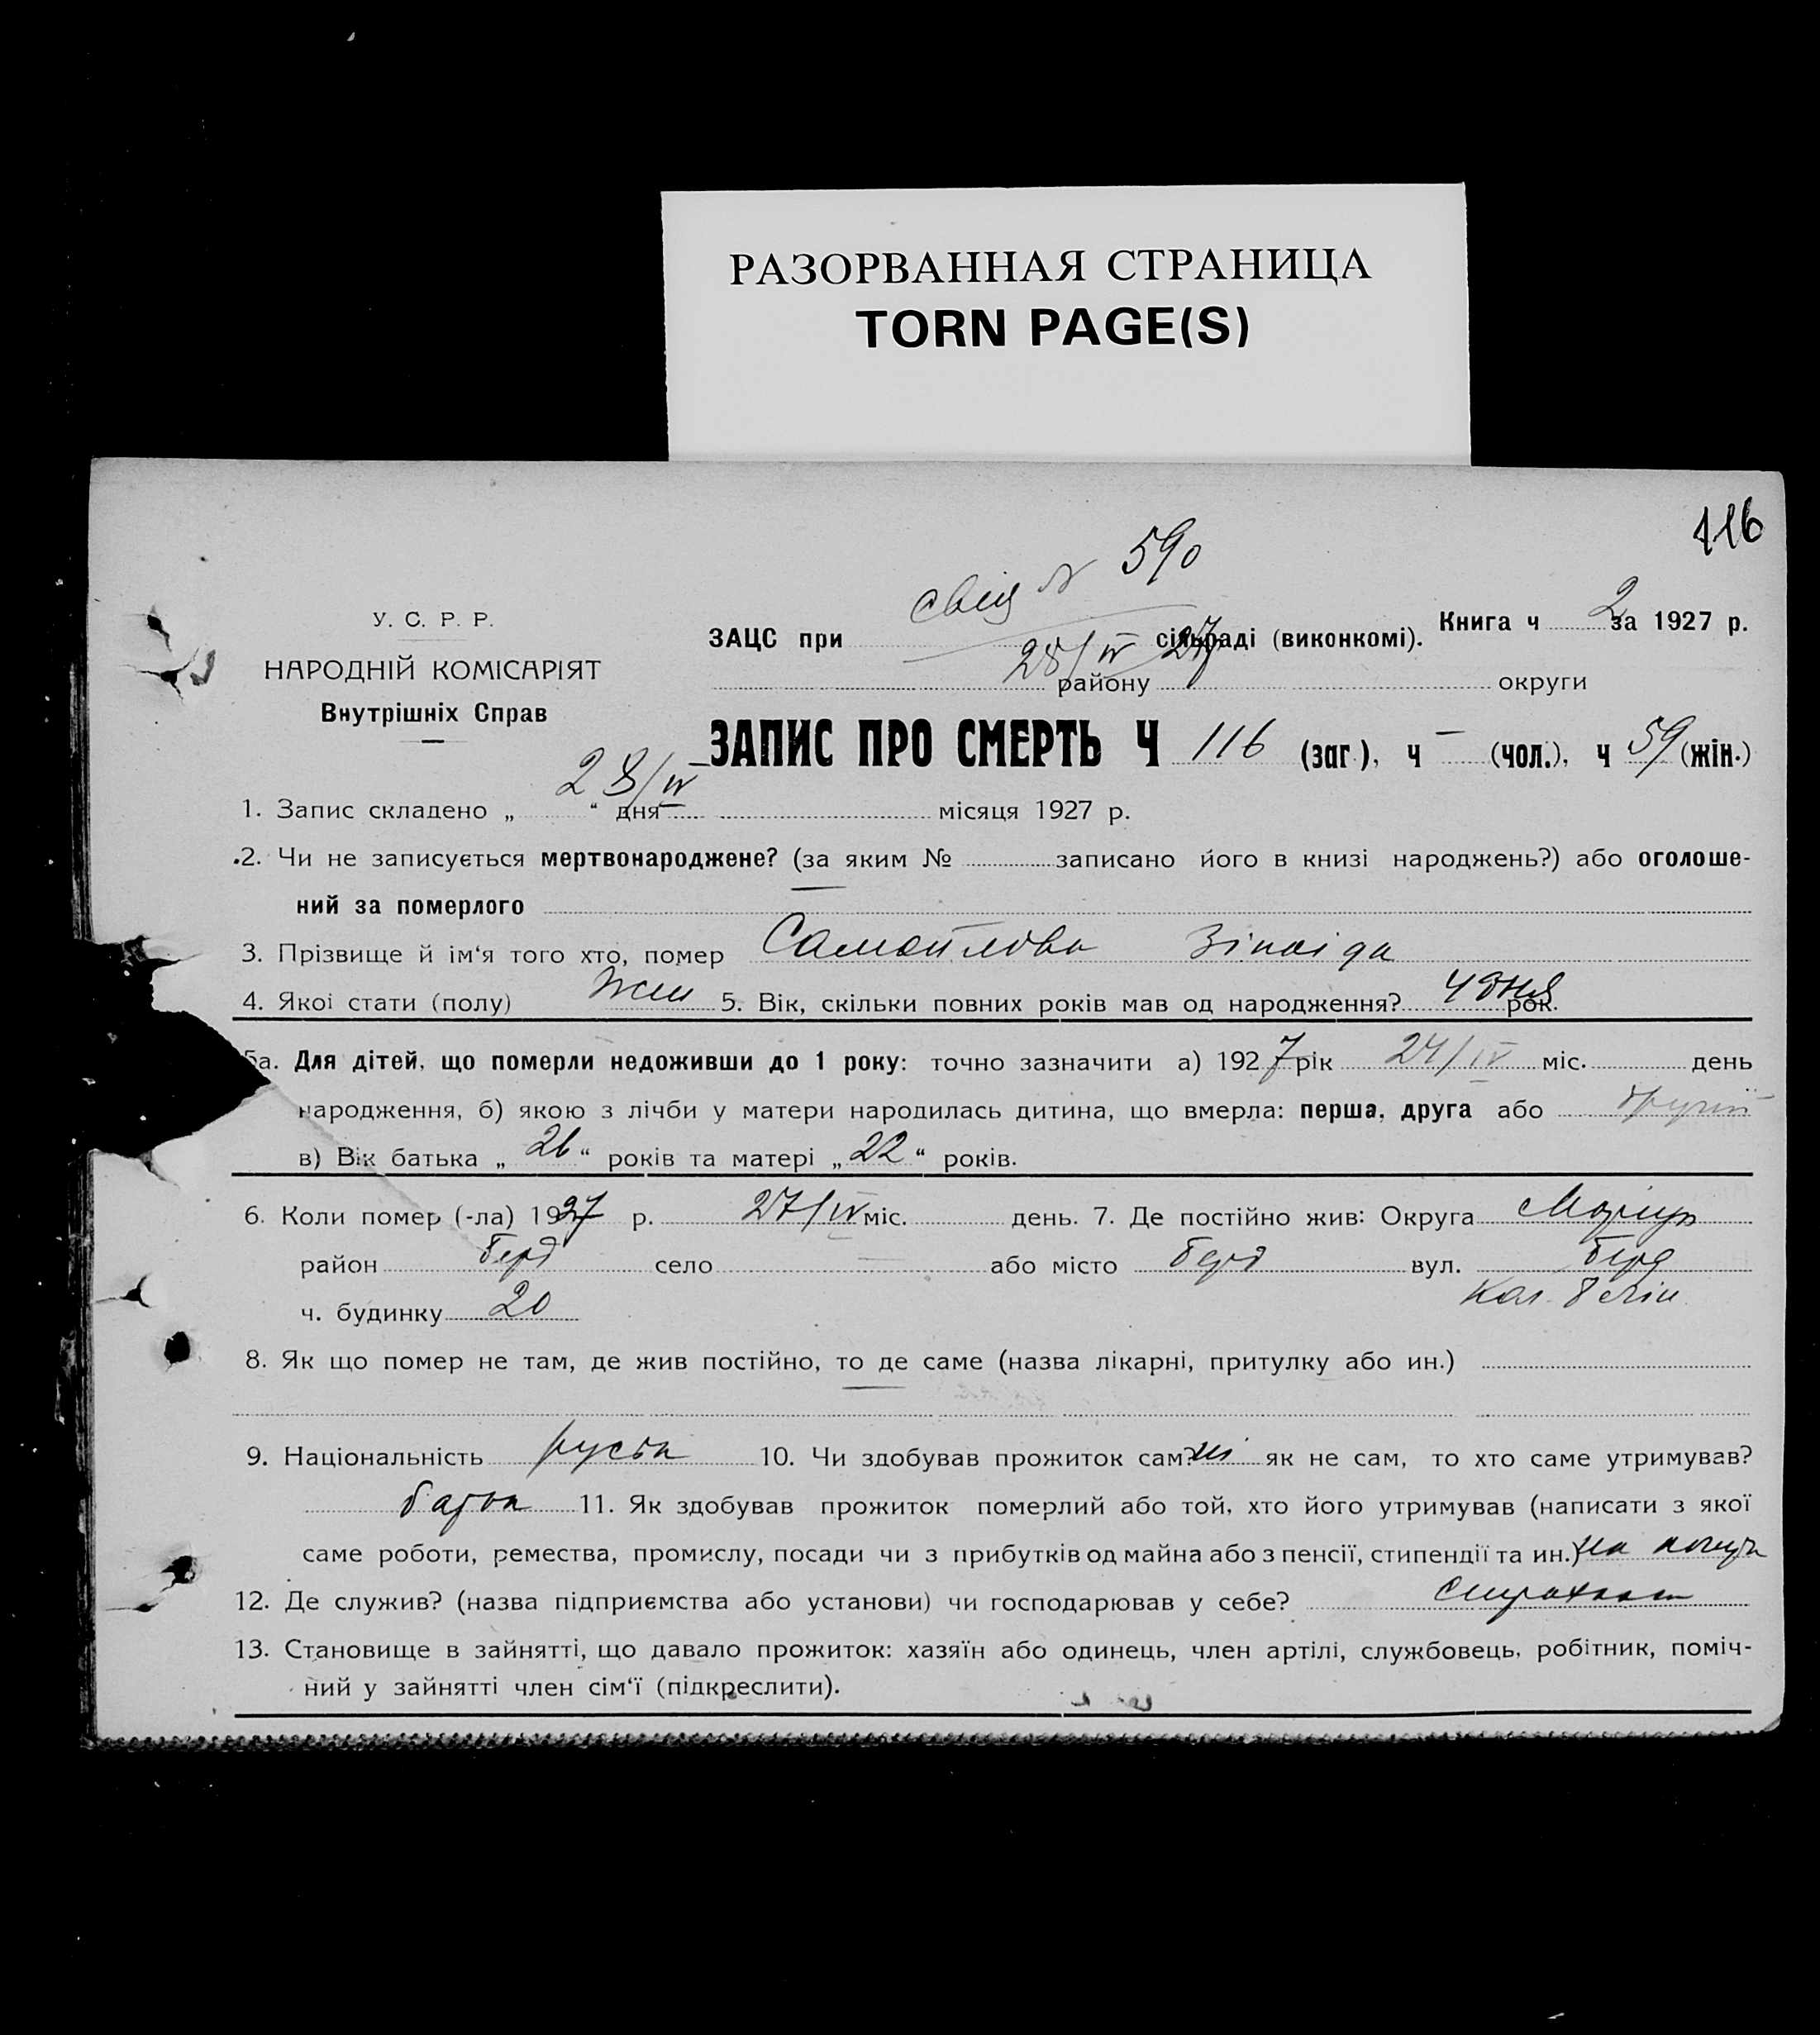 РАЗОРВАННАЯ СТРАНИЦА
TORN PAGE(S)
116
свід № 590
28/IV 27
У. С. Р. Р.
НАРОДНІЙ КОМІСАРІЯТ
Внутрішніх Справ
ЗАЦС при сільраді (виконкомі). Книга ч 2 за 1927 р.
району округи
ЗАПИС ПРО СМЕРТЬ Ч 116 (заг.), ч — (чол.), ч 59 (жін.)
1. Запис складено „ 28/IV “ дня місяця 1927 р.
2. Чи не записується мертвонароджене? (за яким № записано його в книзі народжень?) або оголоше-
ний за померлого
3. Прізвище й ім‘я того хто, помер Самойлова Зінаіда
4. Якої стати (полу) Жен 5. Вік, скільки повних років мав од народження? 4 дня рок.
5а. Для дітей, що померли недоживши до 1 року: точно зазначити а) 1927 рік 24/IV міс. день
народження, б) якою з лічби у матери народилась дитина, що вмерла: перша, друга або
в) Вік батька „ 26 “ років та матері „ 22 “ років.
6. Коли помер (-ла) 1927 р. 27/IV міс. день. 7. Де постійно жив: Округа Маріуп
район Берд село — або місто Берд вул. Берд
ч. будинку 20 Кал
8. Як що помер не там, де жив постійно, то де саме (назва лікарні, притулку або ин.)
9. Національність руська 10. Чи здобував прожиток сам? ні як не сам, то хто саме утримував?
батьк 11. Як здобував прожиток померлий або той, хто його утримував (написати з якої
саме роботи, ремества, промислу, посади чи з прибутків од майна або з пенсії, стипендії та ин.)
12. Де служив? (назва підприємства або установи) чи господарював у себе?
13. Становище в зайнятті, що давало прожиток: хазяїн або одинець, член артілі, службовець, робітник, поміч-
ний у зайнятті член сім‘ї (підкреслити).